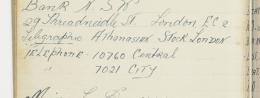 Bank N.S.W.
29 Threadneedle St. London E.C.2
Telegraphic Athanasian Stock London
TELEPHONE 10760 Central
7021 CITY